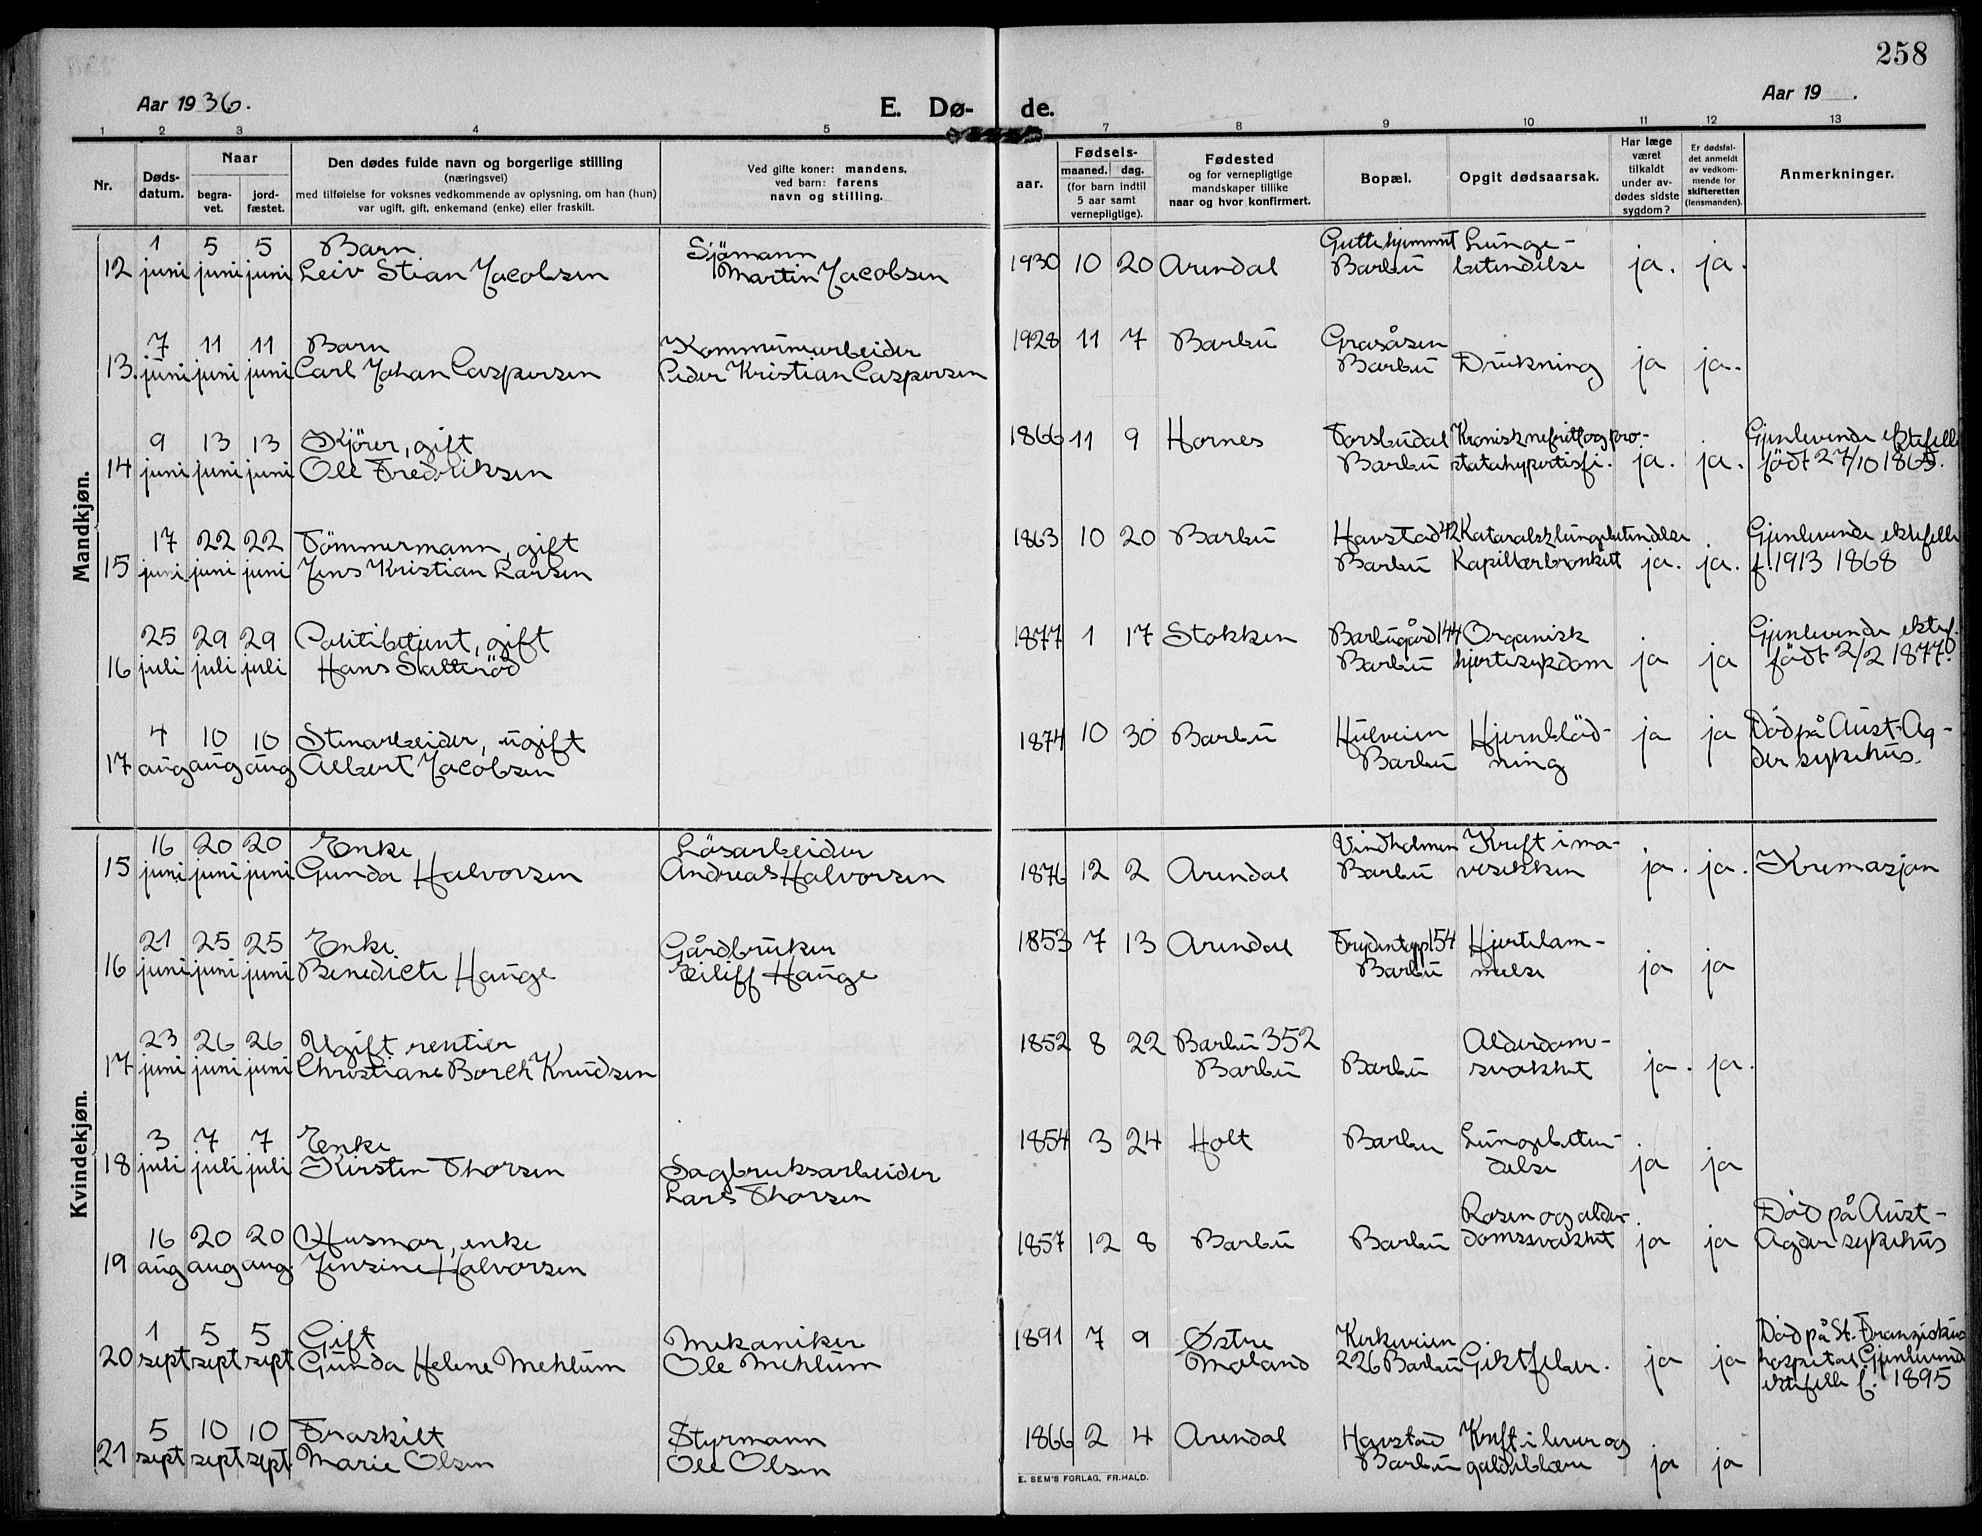 258
Aar 1936.
E. Dø- de.
Aar 19 .
1 2 3 4 5 7 8 9 10 11 12 13
Nr.
Døds-
datum.
Naar
begra-
vet.
jord-
fæstet.
Den dødes fulde navn og borgerlige stilling
(næringsvei)
med tilføielse for voksnes vedkommende av oplysning, om han (hun)
var ugift, gift, enkemand (enke) eller fraskilt.
Ved gifte koner: mandens,
ved barn: farens
navn og stilling.
aar.
Fødsels-
maaned. dag.
(for barn indtil
5 aar samt
vernepligtige).
Fødested
og for vernepligtige
mandskaper tillike
naar og hvor konfirmert.
Bopæl.
Opgit dødsaarsak.
Har læge
været
tilkaldt
under av-
dødes sidste
sygdom?
Er dødsfal-
det anmeldt
av vedkom-
mende for
skifteretten
(lensmanden).
Anmerkninger.
Mandkjøn.
1 5 5 Barn Sjömann Guttehjemmet Lunge-
12 juni juni juni Leiv Stian Jacobsen Martin Jacobsen 1930 10 20 Arendal Barbu betendelse ja. ja.
7 11 11 Barn Kommunearbeider 1928 11 7 Barbu Gråsåsen
13. juni juni juni Carl Johan Caspersen Peder Kristian Caspersen Barbu Drukning ja ja.
9 13 13 Kjörer, gift 1866 11 9 Hornes Torsbudal Kronisk nefritt og pro- Gjenlevende ektefelle
14 juni juni juni Ole Fredriksen Barbu ja. ja. födt 27/10 1865.
17 22 22 Tömmermann, gift 1863 10 20 Barbu Havstad 42 Kataralsk lungebetendelse Gjenlevende ektefelle
15 juni juni juni Jens Kristian Larsen Barbu Kapillærbronkitt ja. ja. f. 1913 1868
25 29 29 Politibetjent, gift 1877 1 17 Stokken Barbugård 144 Organisk Gjenlevende ektef.
16 juli juli juli Hans Salteröd Barbu hjertesykdom ja ja födt 2/2 1877.
4 10 10 Stenarbeider, ugift 1874 10 30 Barbu Hulveien Hjernblöd- ja ja Död på Aust-Ag-
17 aug aug aug Albert Jacobsen Barbu ning der sykehus.
Kvindekjøn.
16 20 20 Enke Lösarbeider Vindholmen Kreft i ma-
15 juni juni juni Gunda Halvorsen Andreas Halvorsen 1876 12 2 Arendal Barbu vesekken ja. ja. Kremasjon
21 25 25 Enke Gårdbruker 1853 7 13 Arendal 154 Hjertelam-
16 juni juni juni Benedicte Hauge Eiliff Hauge Barbu melse ja ja
23 26 26 Ugift rentier 1852 8 22 Barbu 352 Alderdom-
17 juni juni juni Christiane Borch Knudsen Barbu Barbu svakhet ja. ja.
3 7 7 Enke 1854 3 24 Holt Barbu Lungebeten-
18 juli juli juli Kirsten Thorsen Sagbruksarbeider delse ja ja
Lars Thorsen
16 20 20 Husmor, enke 1857 12 8 Barbu Barbu Rosen og alder- Död på Aust-
19 aug aug aug Jensine Halvorsen domssvakhet ja ja Agder sykehus
1 5 5 Gift Mekaniker 1891 7 9 Østre Kirkeveien Död på St. Franziskus
20 sept sept sept Gunda Helene Mehlum Ole Mehlum Moland 226 Barbu Giktfeber. ja ja hospital Gjenlevende
ektefelle f. 1895
5 10 10 Fraskilt Styrmann 1866 2 4 Arendal Havstad Kreft i lever og
21 sept sept sept Marie Olsen Ole Olsen Barbu galdeblære ja ja
E. SEM'S FORLAG, FR.HALD.